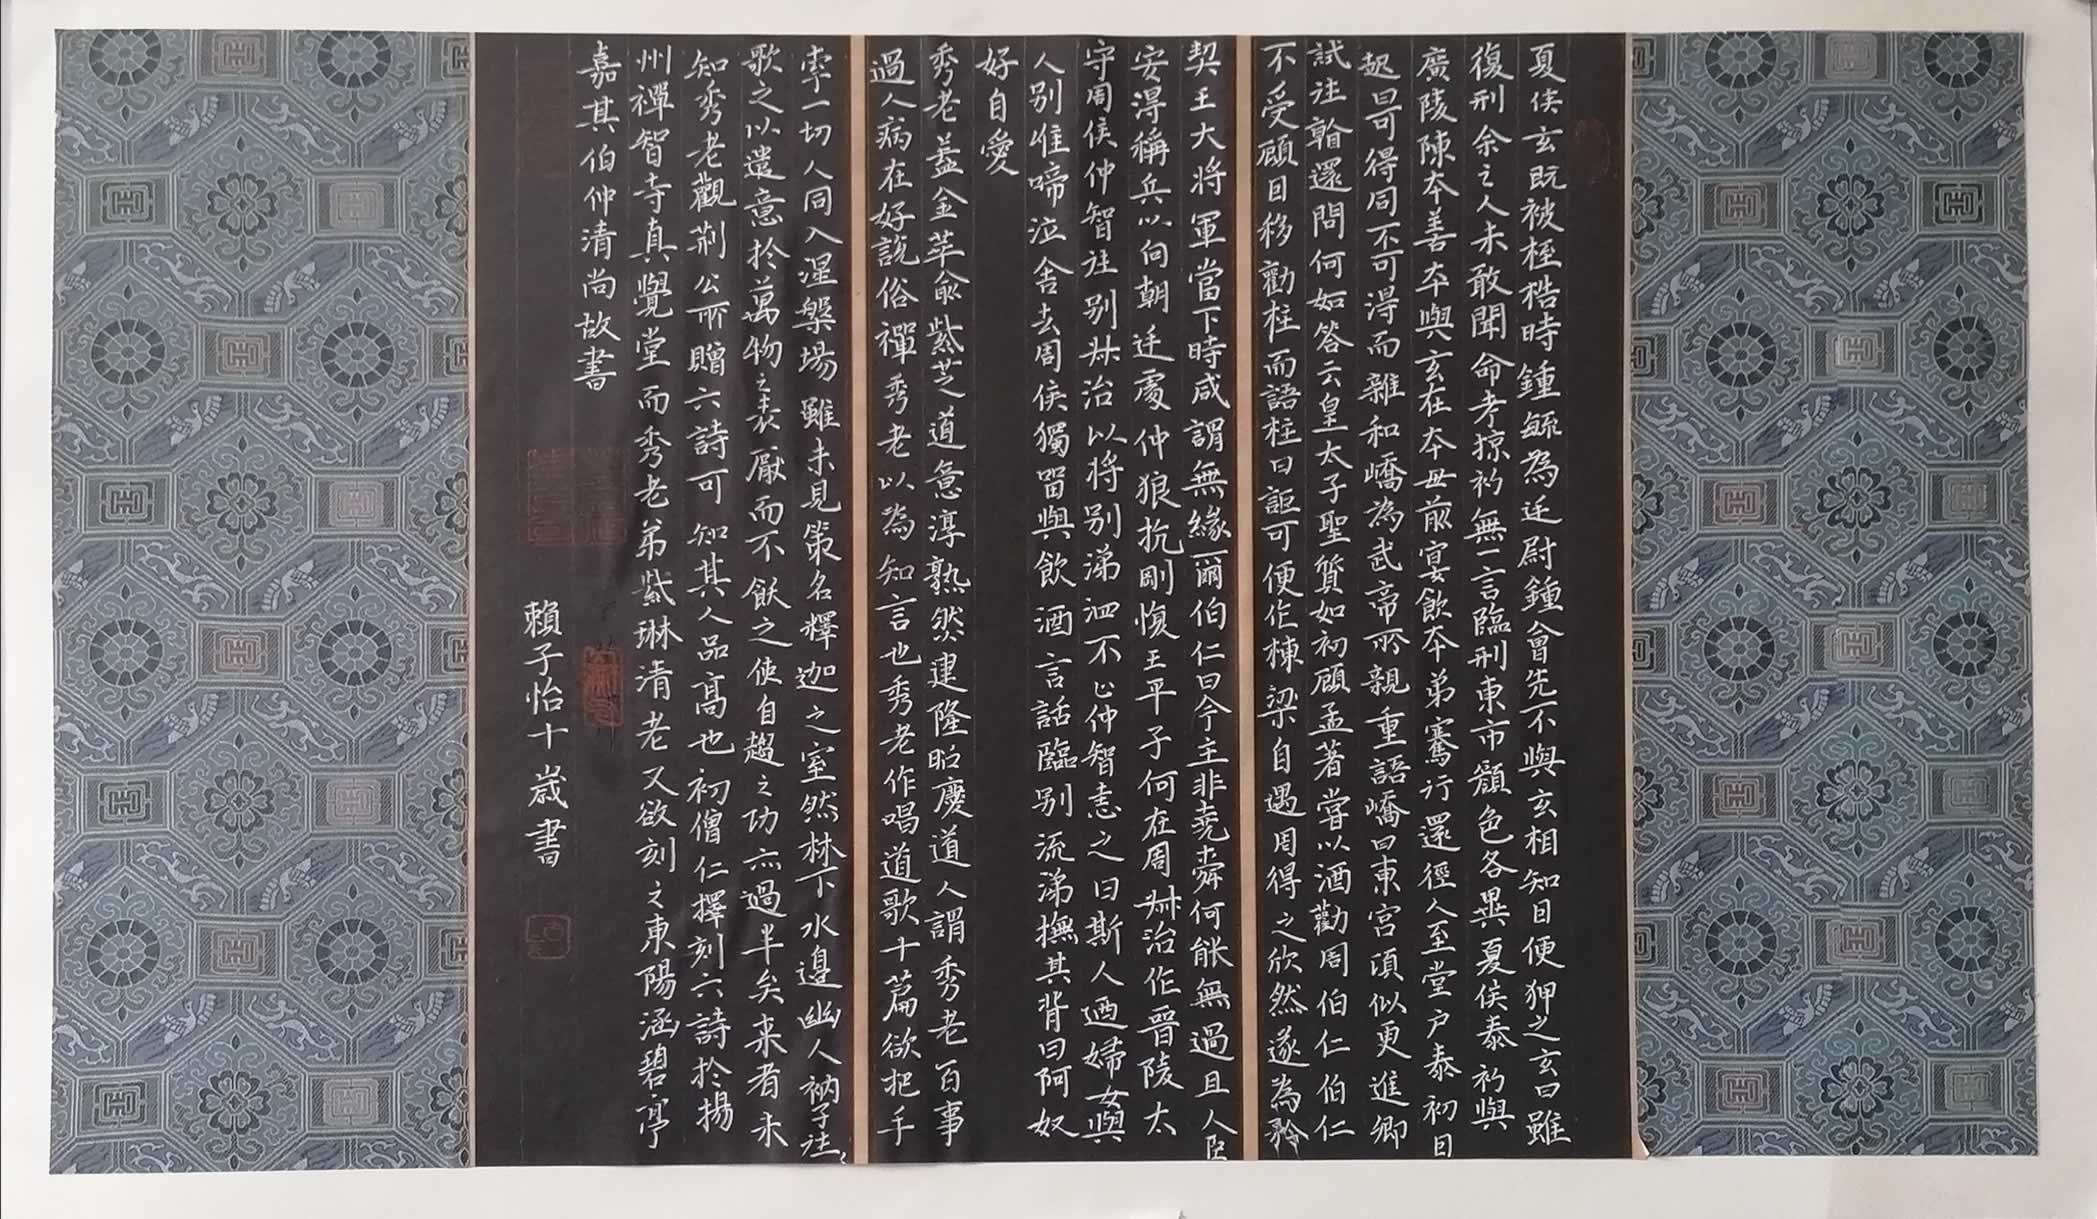 夏侯玄既被桎梏時鍾毓為廷尉鍾會先不與玄相知目便狎之玄曰雖
復刑余之人未敢聞命考掠初無一言臨刑東市顏色各異夏侯泰初與
廣陵陳本善本與玄在本母前宴飲本弟騫行還徑入至堂户泰初目
起曰可得同不可得而雜和嶠為武帝所親重語嶠曰東宮頃似更進卿
試往㸔還問何如答云皇太子聖質如初顧孟著嘗以酒勸周伯仁伯仁
不受顧目移勸柱而語柱曰詎可便作棟梁自遇周得之欣然遂為衿
契王大將軍當下時咸謂無緣爾伯仁曰今主非堯舜何能無過且人臣
安得稱兵以向朝廷處仲狼抗剛愎王平子何在周叔治作晉陵太
守周侯仲智往别叔治以將别涕泗不止仲智恚之曰斯人迺婦女與
人别唯啼泣舍去周侯獨留與飲酒言話臨别流涕撫其背曰阿奴
好自愛
秀老蓋金華俞紫芝道意淳熟然建隆昭慶道人謂秀老百事
過人病在好說俗禪秀老以為知言也秀老作唱道歌十篇欲把手
牽一切人同入涅槃場雖未見策名釋迦之室然林下水邊幽人衲子往〻
歌之以遣意於萬物之表厭而不飫之使自趨之功亦過半矣来者未
知秀老觀荆公所贈六詩可知其人品高也初僧仁擇刻六詩於揚
州禪智寺真覺堂而秀老弟紫琳清老又欲刻之東陽涵碧亭
嘉其伯仲清尚故書
賴子怡十歲書